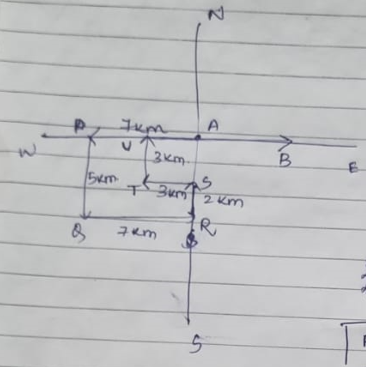 N
P 7km A
W U B E
3km
5km
T 3km S
2km
Q 7km R
S